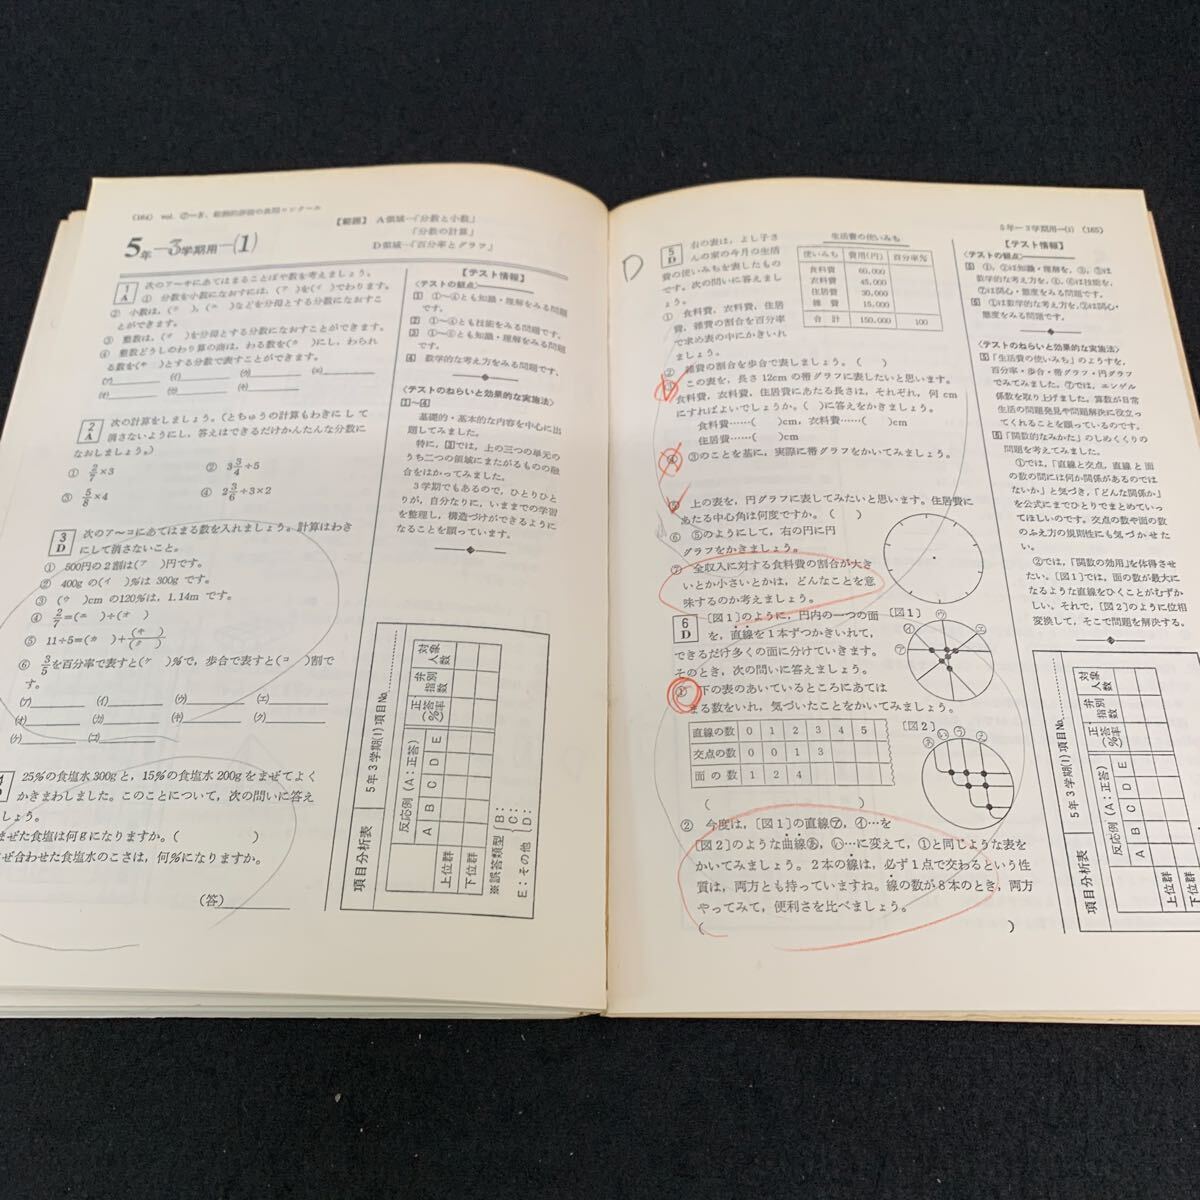 5年—3学期用—(1)
【範囲】 A領域—「分数と小数」
「分数の計算」
D領域—「百分率とグラフ」
1
A
次のア〜キにあてはまることばや数を考えましょう。
① 分数を小数になおすには、(ア )を(イ )でわります。
② 小数は、(ウ )、(エ )などを分母とする分数になおすこ
とができます。
③ 整数は、(オ )を分母とする分数になおすことができます。
④ 整数どうしのわり算の商は、わる数を(カ )にし、わられ
る数を(キ )とする分数で表すことができます。
(ア) (イ) (ウ) (エ)
(オ) (カ) (キ)
2
A
次の計算をしましょう。(とちゅうの計算もわきにして
消さないようにし、答えはできるだけかんたんな分数に
なおしましょう。)
① 2/7×3 ② 3 3/4÷5
③ 5/8×4 ④ 2 3/6÷3×2
3
D
次のア〜コにあてはまる数を入れましょう。計算はわき
にして消さないこと。
① 500円の2割は(ア )円です。
② 400gの(イ )%は300gです。
③ (ウ )cmの120%は、1.14mです。
④ 2/7=(エ )÷(オ )
⑤ 11÷5=(カ )+(キ )/(ク )
⑥ 3/5を百分率で表すと(ケ )%で、歩合で表すと(コ )割で
す。
(ア) (イ) (ウ) (エ)
(オ) (カ) (キ) (ク)
(ケ) (コ)
25%の食塩水300gと、15%の食塩水200gをまぜてよく
かきまわしました。このことについて、次の問いに答え
しょう。
まぜた食塩は何gになりますか。( )
ぜ合わせた食塩水のこさは、何%になりますか。
(答)
【テスト情報】
〈テストの観点〉
1 ①〜④とも知識・理解をみる問題
です。
2 ①〜④とも技能をみる問題です。
3 ①〜⑥とも知識・理解をみる問題
です。
4 数学的な考え方をみる問題です。
〈テストのねらいと効果的な実施法〉
1〜4
基礎的・基本的な内容を中心に出
題してみました。
特に、3では、上の三つの単元の
うち二つの領域にまたがるものの融
合をはかってみました。
3学期でもあるので、ひとりひと
りが、自分なりに、いままでの学習
を整理し、構造づけができるように
なることを願っています。
項目分析表
5年3学期(1) 項目No.
反応例(A:正答)
正答率(%)
弁別指数
対象人数
A B C D E
上位群
下位群
※誤答類型
B:
C:
D:
E:その他
5年—3学期用—(1) (165)
D
5
D
右の表は、よし子さ
んの家の今月の生活
費の使いみちを表したもの
です。次の問いに答えまし
ょう。
① 食料費、衣料費、住居
費、雑費の割合を百分率
で求め表の中にかきいれ
ましょう。
生活費の使いみち
使いみち 費用(円) 百分率%
食料費 60,000
衣料費 45,000
住居費 30,000
雑費 15,000
合計 150,000 100
② 雑費の割合を歩合で表しましょう。( )
③ この表を、長さ12cmの帯グラフに表したいと思います。
食料費、衣料費、住居費にあたる長さは、それぞれ、何cm
にすればよいでしょうか。( )に答えをかきましょう。
食料費……( )cm、衣料費……( )cm
住居費……( )cm
④ ③のことを基に、実際に帯グラフをかいてみましょう。
⑤ 上の表を、円グラフに表してみたいと思います。住居費に
あたる中心角は何度ですか。( )
⑥ ⑤のようにして、右の円に円
グラフをかきましょう。
⑦ 全収入に対する食料費の割合が大き
いとか小さいとかは、どんなことを意
味するのか考えましょう。
6
D
〔図1〕のように、円内の一つの面
を、直線を1本ずつかきいれて、
できるだけ多くの面に分けていきます。
そのとき、次の問いに答えましょう。
〔図1〕
㋐ ㋑ ㋒ ㋓
① 下の表のあいているところにあては
まる数をいれ、気づいたことをかいてみましょう。
直線の数 0 1 2 3 4 5
交点の数 0 0 1 3
面の数 1 2 4
( )
〔図2〕
あ い う え
② 今度は、〔図1〕の直線㋐、㋑…を
〔図2〕のような曲線あ、い…に変えて、①と同じような表を
かいてみましょう。2本の線は、必ず1点で交わるという性
質は、両方とも持っていますね。線の数が8本のとき、両方
やってみて、便利さを比べましょう。
( )
【テスト情報】
〈テストの観点〉
5 ①、②は知識・理解を、③、⑤は
数学的な考え方を、④、⑥は技能を、
⑦は関心・態度をみる問題です。
6 ①は数学的な考え方を、②は関心・
態度をみる問題です。
〈テストのねらいと効果的な実施法〉
5「生活費の使いみち」のようすを、
百分率・歩合・帯グラフ・円グラフ
でみてみました。⑦では、エンゲル
係数を取り上げました。算数が日常
生活の問題発見や問題解決に役立っ
てくれることを願っているのです。
6「関数的なみかた」のしめくくりの
問題を考えてみました。
①では、「直線と交点、直線と面
の数の間には何か関係があるのでは
ないか」と気づき、「どんな関係か」
を公式にまでひとりでまとめていっ
てほしいのです。交点の数や面の数
のふえ方の規則性にも気づかせた
い。
②では、「関数の効用」を体得させ
たい。〔図1〕では、面の数が最大に
なるような直線をひくことがむずか
しい。それで、〔図2〕のように位相
変換して、そこで問題を解決する。
項目分析表
5年3学期(1) 項目No.
反応例(A:正答)
正答率(%)
弁別指数
対象人数
A B C D E
上位群
下位群